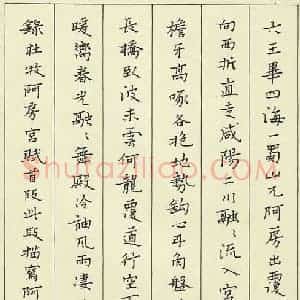 六王畢四海一蜀山兀阿房出覆
向西折直走咸陽二川融々流入宮
檐牙高啄各抱地勢鉤心斗角盤
長橋臥波未雲何龍覆道行空
暖響春光融々舞殿冷袖風雨淒
錄杜牧阿房宮賦首段此段描寫阿
Shufaziliao.com